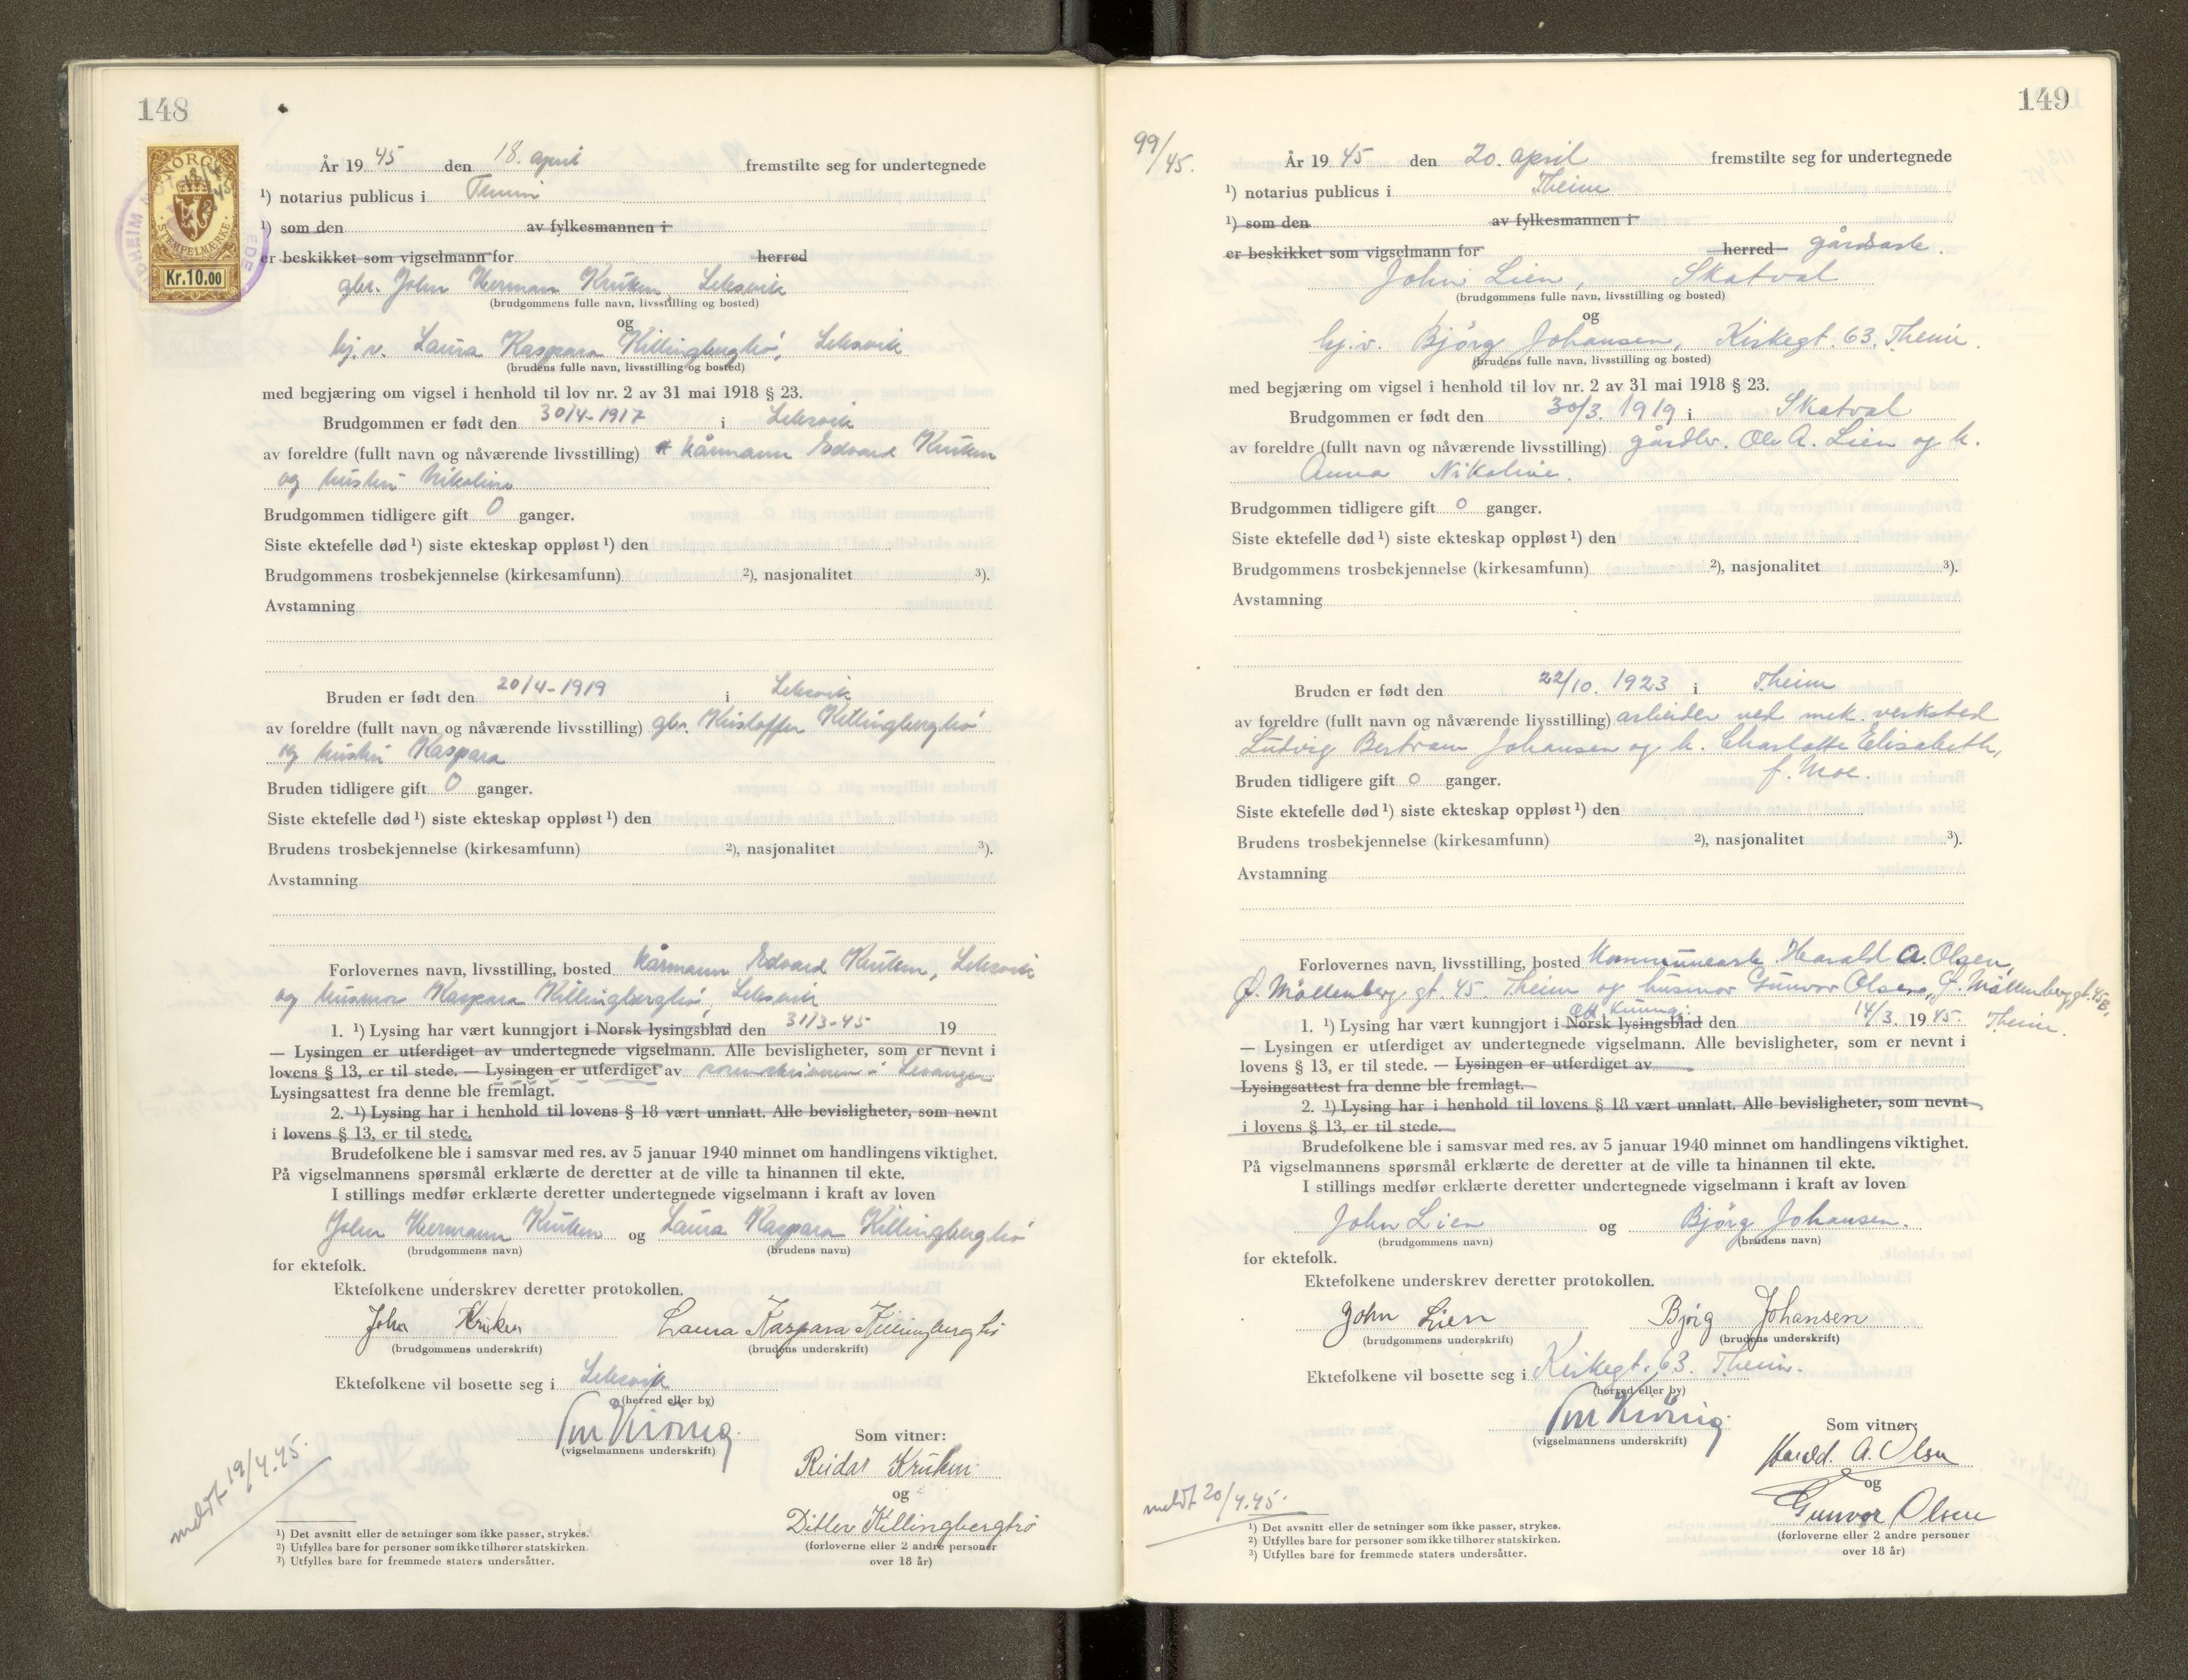 148
NORGE
STEMPELMÆRKE
Kr.10.00
År 19 45 den 18. april fremstilte seg for undertegnede
¹) notarius publicus i
¹) som den av fylkesmannen i
er beskikket som vigselmann for herred
gbr. John Herman Kruken, Leksvik
(brudgommens fulle navn, livsstilling og bosted)
og
hj.v. Laura Kaspara Killingberghø, Leksvik
(brudens fulle navn, livsstilling og bosted)
med begjæring om vigsel i henhold til lov nr. 2 av 31 mai 1918 § 23.
Brudgommen er født den 30/4-1917 i Leksvik
av foreldre (fullt navn og nåværende livsstilling) kårmann Edvard Kruken
og hustru Nikoline
Brudgommen tidligere gift 0 ganger.
Siste ektefelle død ¹) siste ekteskap oppløst ¹) den
Brudgommens trosbekjennelse (kirkesamfunn) ²), nasjonalitet ³).
Avstamning
Bruden er født den 20/4-1919 i Leksvik
av foreldre (fullt navn og nåværende livsstilling) gbr. Kristoffer Killingberghø
og hustru Kaspara
Bruden tidligere gift 0 ganger.
Siste ektefelle død ¹) siste ekteskap oppløst ¹) den
Brudens trosbekjennelse (kirkesamfunn) ²), nasjonalitet ³).
Avstamning
Forlovernes navn, livsstilling, bosted kårmann Edvard Kruken, Leksvik
og husmor Kaspara Killingberghø, Leksvik
1. ¹) Lysing har vært kunngjort i Norsk lysingsblad den 31/3-45 19
— Lysingen er utferdiget av undertegnede vigselmann. Alle bevisligheter, som er nevnt i
lovens § 13, er til stede. — Lysingen er utferdiget av sorenskriveren i Levanger
Lysingsattest fra denne ble fremlagt.
2. ¹) Lysing har i henhold til lovens § 18 vært unnlatt. Alle bevisligheter, som nevnt
i lovens § 13, er til stede.
Brudefolkene ble i samsvar med res. av 5 januar 1940 minnet om handlingens viktighet.
På vigselmannens spørsmål erklærte de deretter at de ville ta hinannen til ekte.
I stillings medfør erklærte deretter undertegnede vigselmann i kraft av loven
John Hermann Kruken og Laura Kaspara Killingberghø
(brudgommens navn) (brudens navn)
for ektefolk.
Ektefolkene underskrev deretter protokollen.
John Kruken Laura Kaspara Killingberghø
(brudgommens underskrift) (brudens underskrift)
Ektefolkene vil bosette seg i Leksvik
(herred eller by)
(vigselmannens underskrift)
Som vitner:
Reidar Kruken
og
Ditlev Killingberghø
(forloverne eller 2 andre personer
over 18 år)
meldt 19/4.45.
¹) Det avsnitt eller de setninger som ikke passer, strykes.
²) Utfylles bare for personer som ikke tilhører statskirken.
³) Utfylles bare for fremmede staters undersåtter.
149
99/45.
År 19 45 den 20. april fremstilte seg for undertegnede
¹) notarius publicus i Theim
¹) som den av fylkesmannen i
er beskikket som vigselmann for herred gårdsarb.
John Lien, Skatval
(brudgommens fulle navn, livsstilling og bosted)
og
hj.v. Bjørg Johansen, Kirkegt. 63. Theim.
(brudens fulle navn, livsstilling og bosted)
med begjæring om vigsel i henhold til lov nr. 2 av 31 mai 1918 § 23.
Brudgommen er født den 30/3. 1919 i Skatval
av foreldre (fullt navn og nåværende livsstilling) gårdbr. Ole A. Lien og h.
Anna Nikoline.
Brudgommen tidligere gift 0 ganger.
Siste ektefelle død ¹) siste ekteskap oppløst ¹) den
Brudgommens trosbekjennelse (kirkesamfunn) ²), nasjonalitet ³).
Avstamning
Bruden er født den 22/10. 1923 i Theim
av foreldre (fullt navn og nåværende livsstilling) arbeider ved mek. verksted
Ludvig Bertram Johansen og h. Charlotte Elisabeth,
f. Moe.
Bruden tidligere gift 0 ganger.
Siste ektefelle død ¹) siste ekteskap oppløst ¹) den
Brudens trosbekjennelse (kirkesamfunn) ²), nasjonalitet ³).
Avstamning
Forlovernes navn, livsstilling, bosted Kommunearb. Harald A. Olsen,
Ø. Møllenberg gt. 45. Theim og husmor Gunvor Olsen, Ø. Møllenberggt. 45B,
Theim.
off. kunng.
1. ¹) Lysing har vært kunngjort i Norsk lysingsblad den 14/3. 19 45.
— Lysingen er utferdiget av undertegnede vigselmann. Alle bevisligheter, som er nevnt i
lovens § 13, er til stede. — Lysingen er utferdiget av
Lysingsattest fra denne ble fremlagt.
2. ¹) Lysing har i henhold til lovens § 18 vært unnlatt. Alle bevisligheter, som nevnt
i lovens § 13, er til stede.
Brudefolkene ble i samsvar med res. av 5 januar 1940 minnet om handlingens viktighet.
På vigselmannens spørsmål erklærte de deretter at de ville ta hinannen til ekte.
I stillings medfør erklærte deretter undertegnede vigselmann i kraft av loven
John Lien og Bjørg Johansen.
(brudgommens navn) (brudens navn)
for ektefolk.
Ektefolkene underskrev deretter protokollen.
John Lien Bjørg Johansen
(brudgommens underskrift) (brudens underskrift)
Ektefolkene vil bosette seg i Kirkegt. 63. Theim.
(herred eller by)
(vigselmannens underskrift)
Som vitner:
Harald. A. Olsen
og
Gunvor Olsen
(forloverne eller 2 andre personer
over 18 år)
meldt 20/4.45.
¹) Det avsnitt eller de setninger som ikke passer, strykes.
²) Utfylles bare for personer som ikke tilhører statskirken.
³) Utfylles bare for fremmede staters undersåtter.